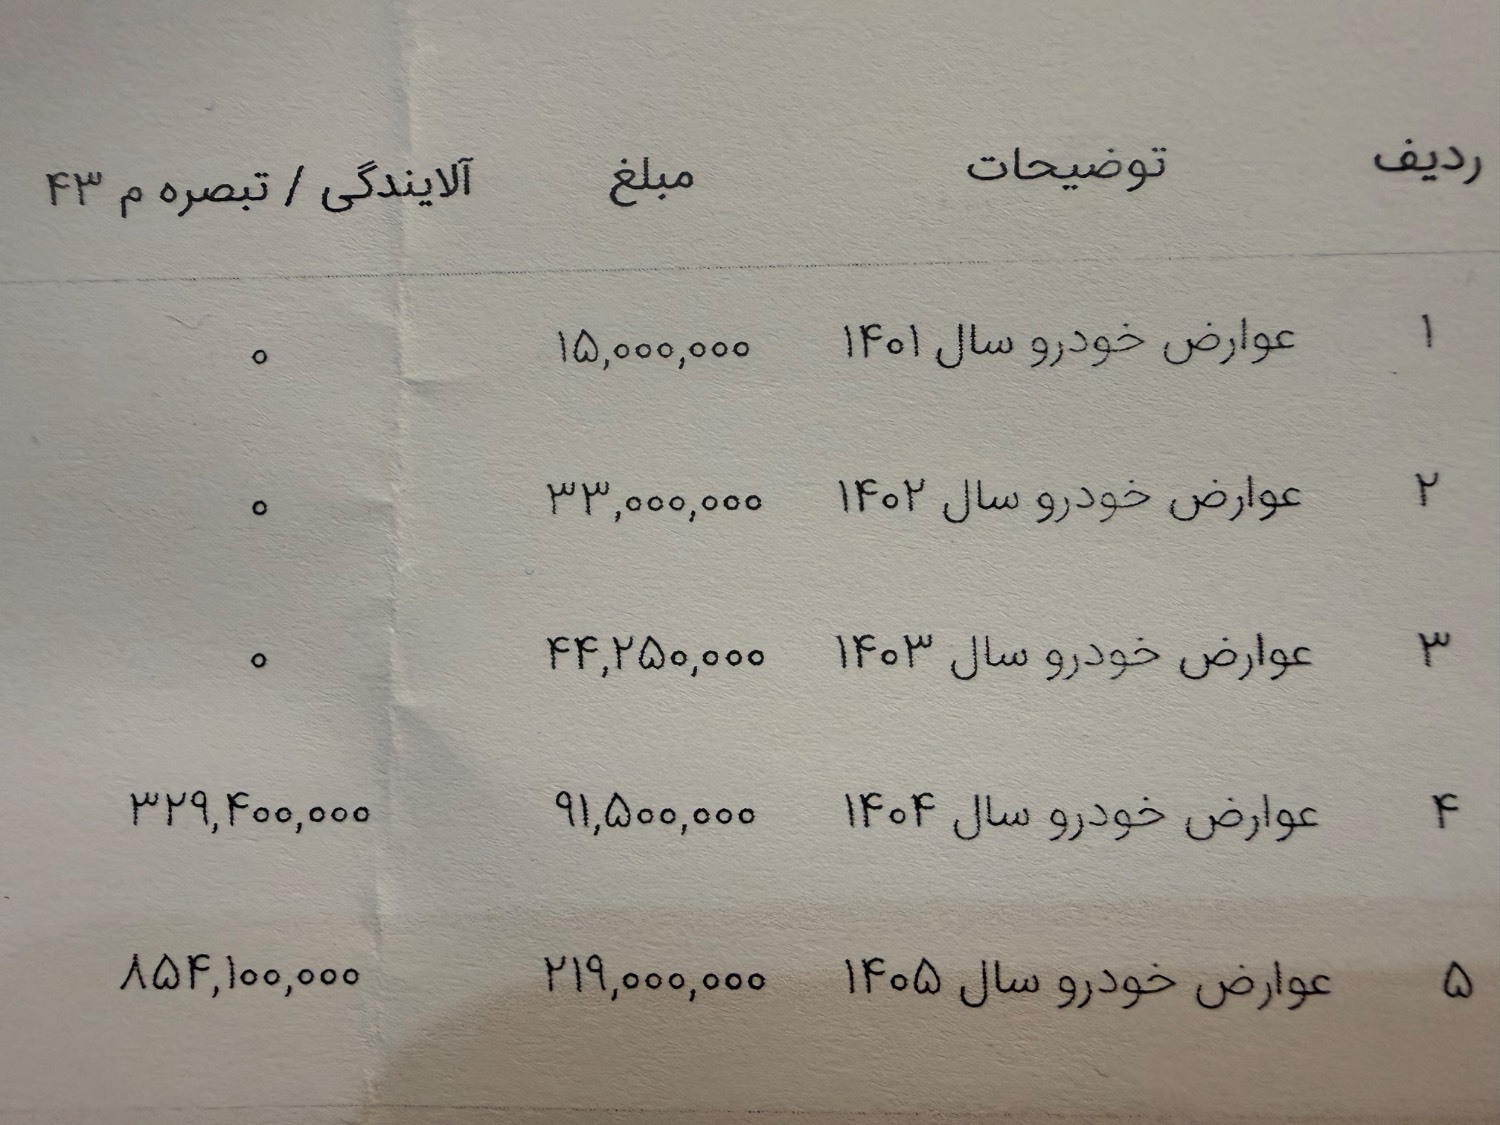 ردیف توضیحات مبلغ آلایندگی / تبصره م ۴۳
۱ عوارض خودرو سال ۱۴۰۱ ۱۵,۰۰۰,۰۰۰ ۰
۲ عوارض خودرو سال ۱۴۰۲ ۳۳,۰۰۰,۰۰۰ ۰
۳ عوارض خودرو سال ۱۴۰۳ ۴۴,۲۵۰,۰۰۰ ۰
۴ عوارض خودرو سال ۱۴۰۴ ۹۱,۵۰۰,۰۰۰ ۳۲۹,۴۰۰,۰۰۰
۵ عوارض خودرو سال ۱۴۰۵ ۲۱۹,۰۰۰,۰۰۰ ۸۵۴,۱۰۰,۰۰۰